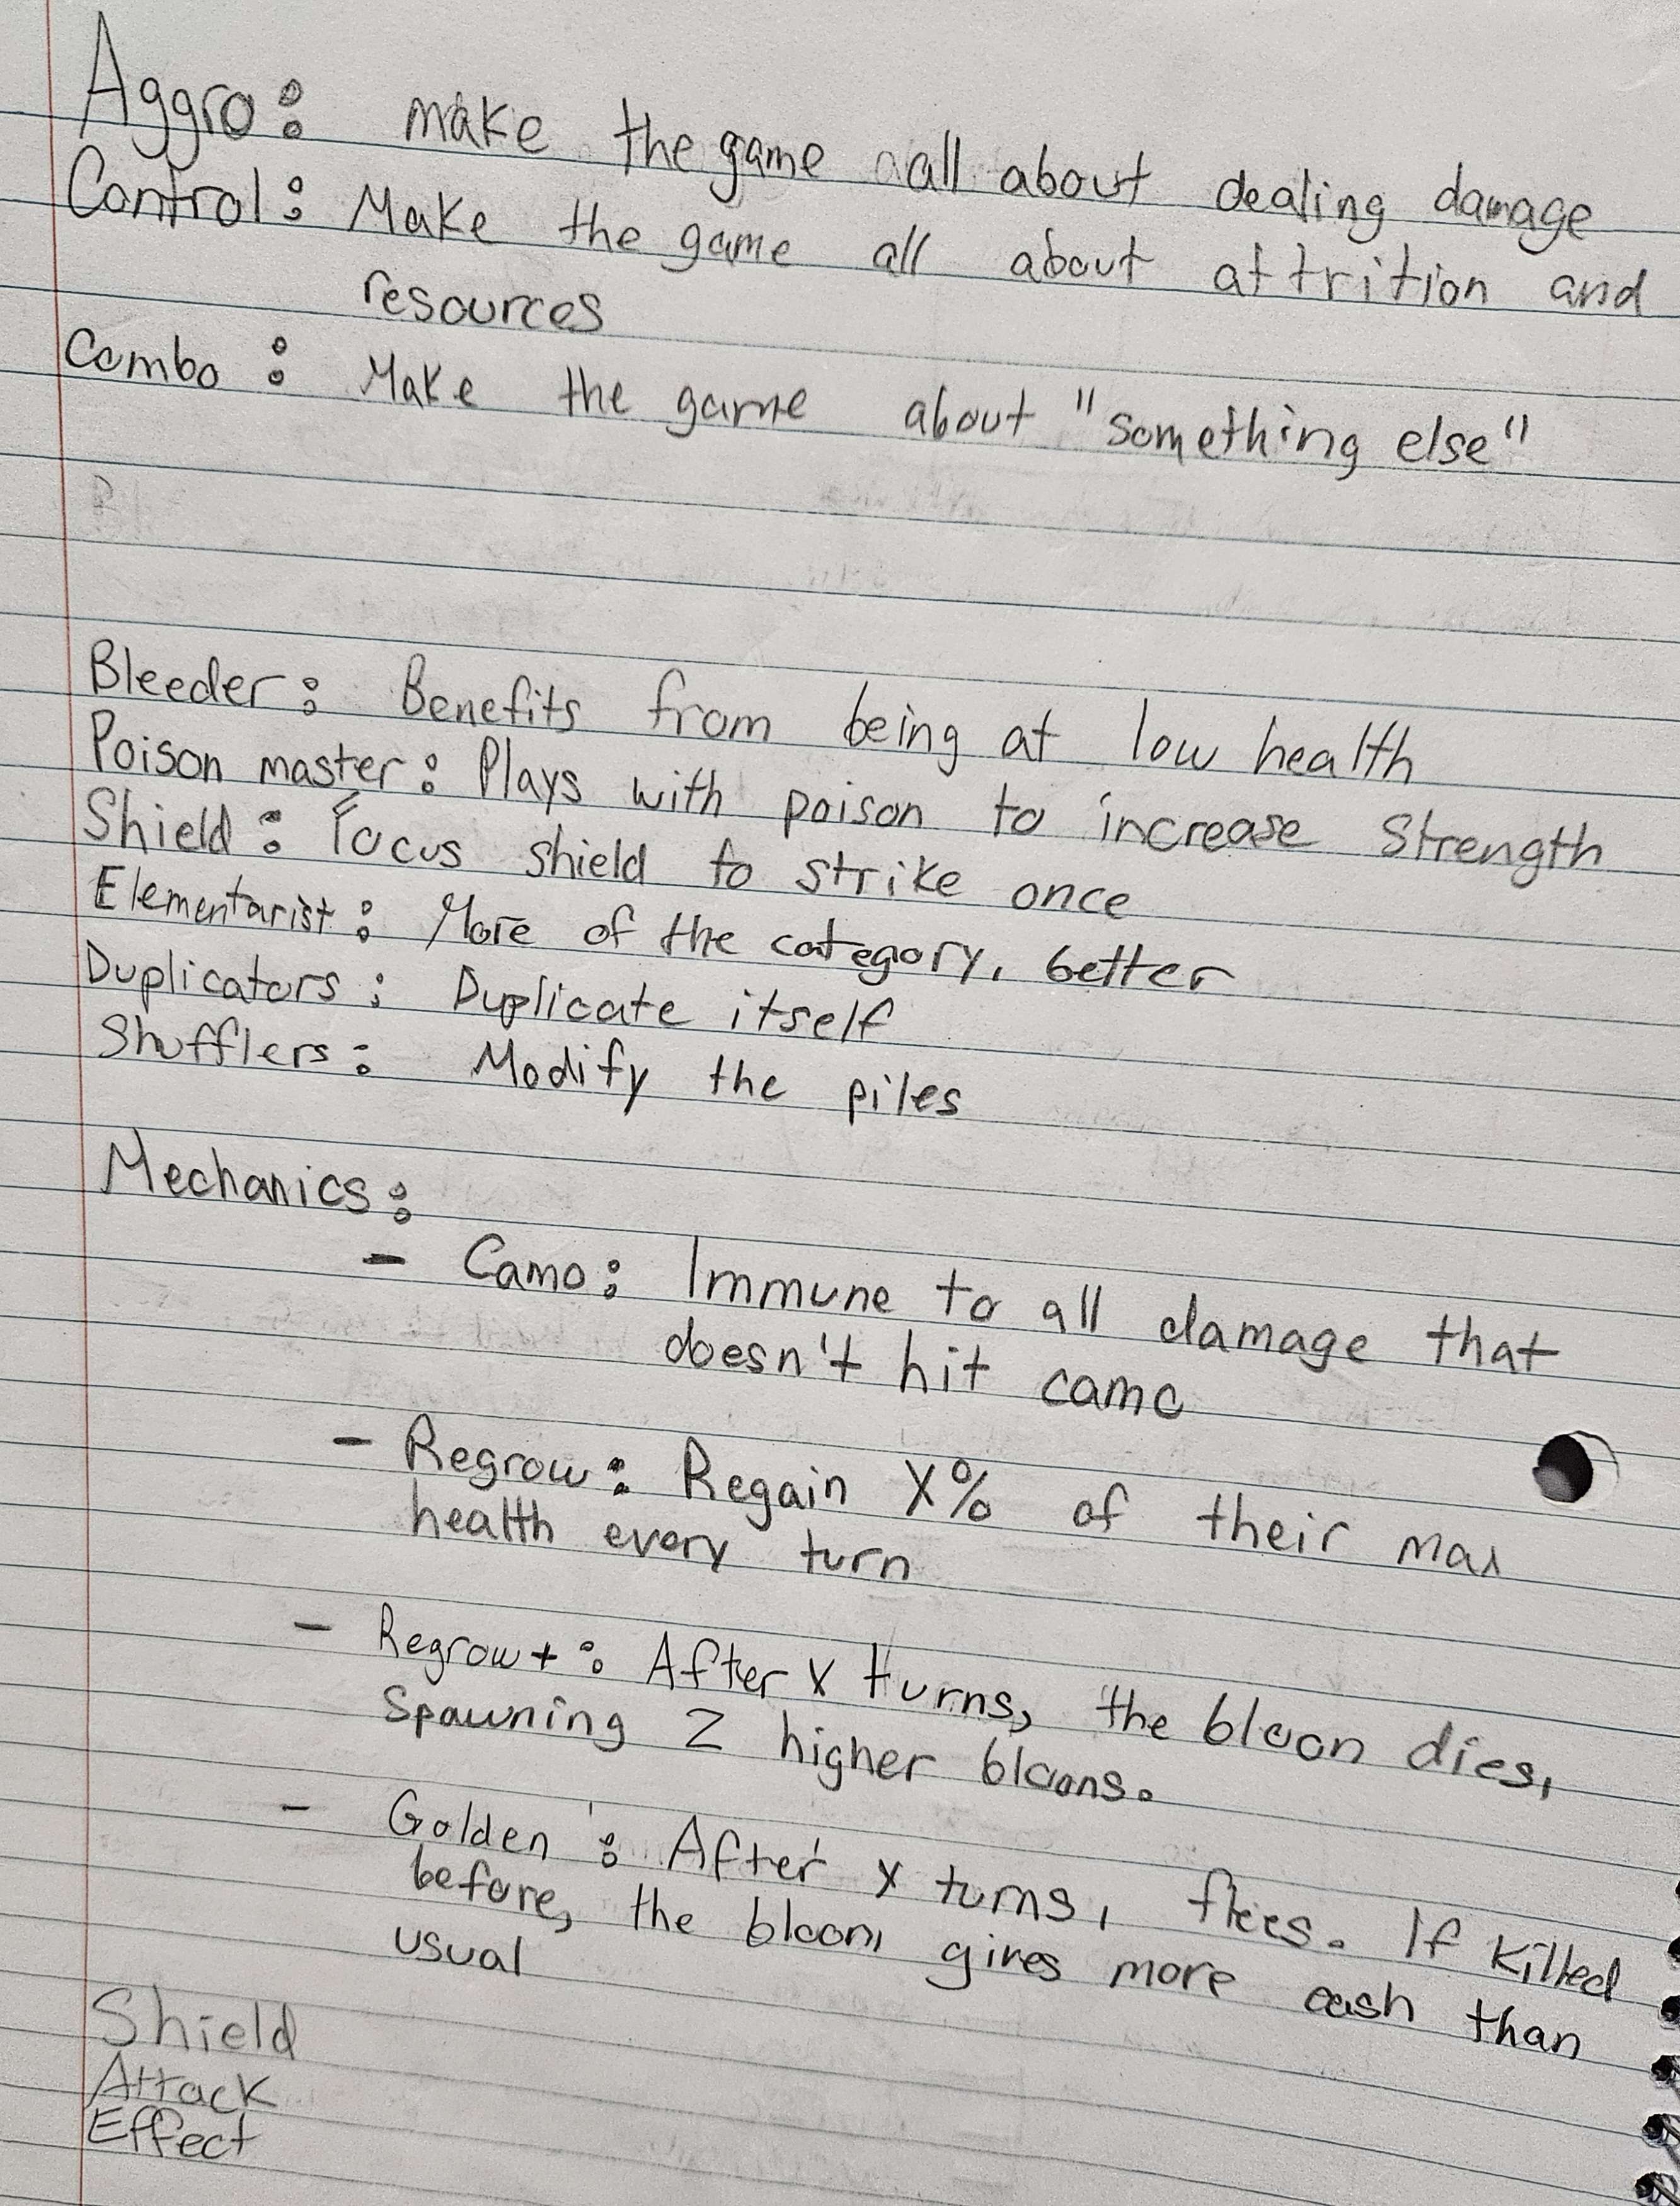 Aggro: make the game all about dealing damage
Control: Make the game all about attrition and
resources
Combo: Make the game about "something else"
Bleeder: Benefits from being at low health
Poison master: Plays with poison to increase Strength
Shield: Focus shield to strike once
Elementarist: More of the category, better
Duplicators: Duplicate itself
Shufflers: Modify the piles
Mechanics:
- Camo: Immune to all damage that
doesn't hit camo
- Regrow: Regain X% of their max
health every turn
- Regrow+: After X turns, the bloon dies,
Spawning 2 higher bloons.
- Golden: After X turns, flees. If killed
before, the bloon gives more cash than
usual
Shield
Attack
Effect